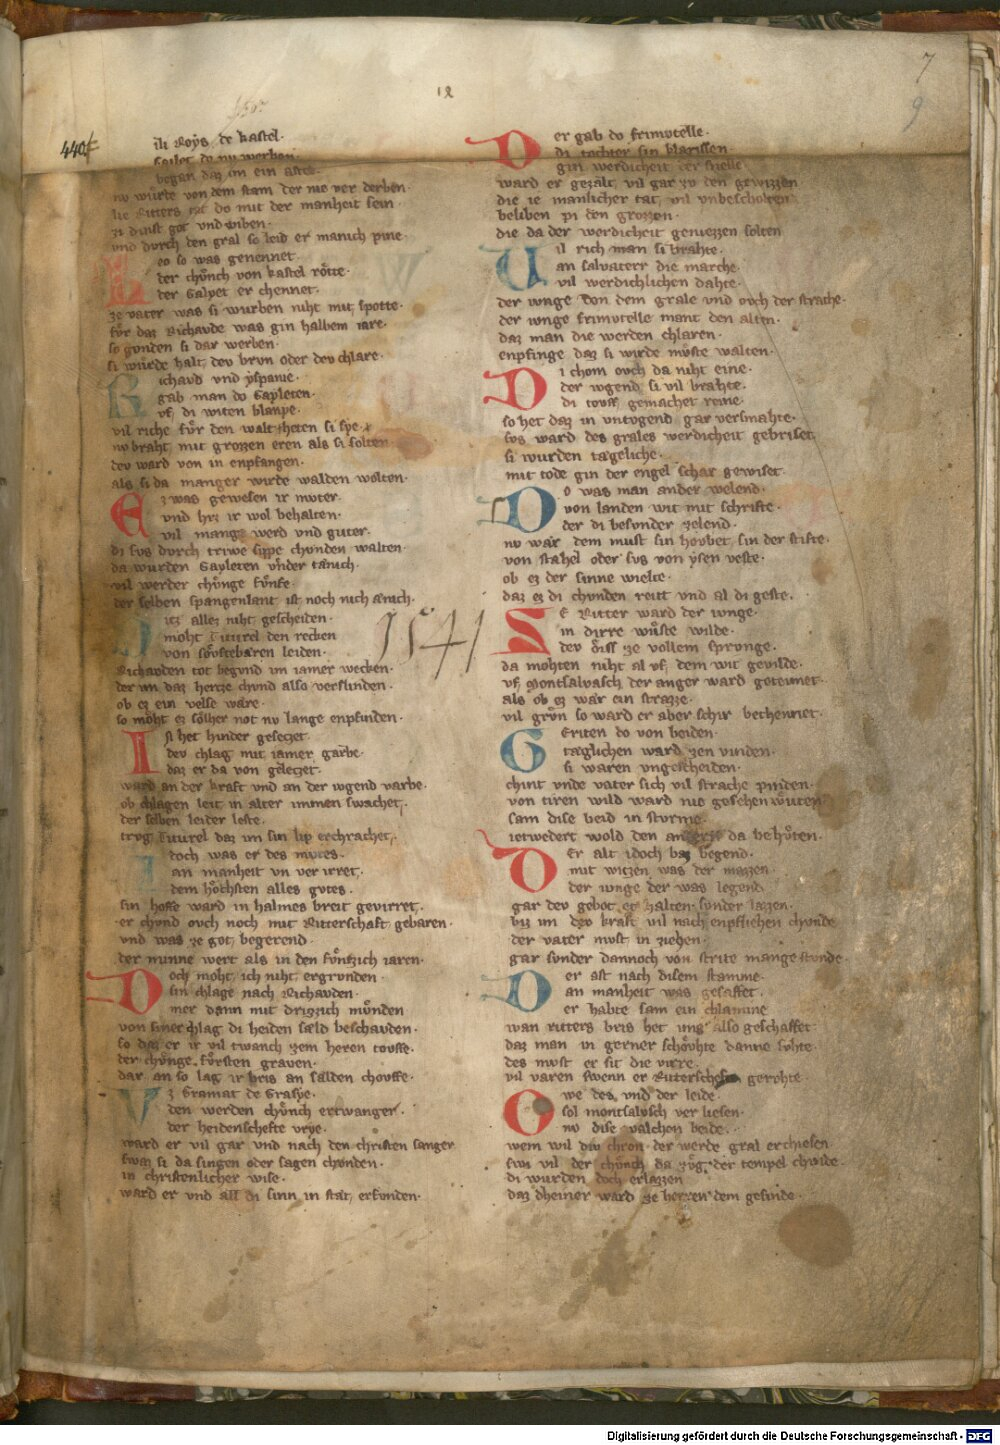 7
9
12
440
ili Roÿs de kastel·
began daz im ein astel·
nv wurte von dem stam der nie ver derben·
sie Ritters tat do mit der manheit sein·
zi dinst got vnd wiben·
vnd dvrch den gral so leid er manich pine·
Leo so was genennet·
der chůnch von kastel rőtte·
der Galyet er chennet·
ze vater was si wurben niht mit spotte·
fůr daz Richavde was gin halbem iare·
so gonden si dar werben·
si wůrde halt dev brvn oder dev chlare·
Richavd vnd yspanie·
gab man do Gapleten·
vf di witen blanpe·
vil riche fůr den walt heten si spe
nv braht mit grozzen eren als si solten
dev ward von in enpfangen·
als si da manger wirde walden wolten·
Ez was gewesen ir mvter·
vnd hrz ir wol behalten·
vil mange werd vnd guter·
di svs dvrch triwe sippe chonden walten·
da wurden Gayleten vnder tanich·
vil werder chůnge fůnfe·
der selben spangenlant ist noch nich ænich·
Ditz allez niht gescheiden·
moht Titurel den recken
von sővftebæren leiden·
Richavden tot begvnd im iamer wecken·
der im daz hertze chvnd also verslinden·
ob ez ein velse wære·
so moht ez sőlher not nv lange enpfinden·
1541
In het hinder gesetzet·
dev chlag mit iamer garbe·
daz er da von geletzet·
ward an der kraft vnd an der ivgend varbe·
ob chlagen leit in alter immen swachet·
der selben leider leste·
trvg Titurel daz im sin lip erchrachet·
doch was er des mvtes·
an manheit vn ver irret·
dem hőchsten alles gvtes·
sin hoffe ward in halmes breit gevirret·
er chvnd ovch noch mit Ritterschaft gebaren·
vnd was ze got begerend·
der minne wert als in den fůnfzich iaren·
Doch moht ich niht ergrvnden·
sin chlage nach Richavden·
mer dann mit drizzich mvnden
von siner chlag di heiden sæld beschavden·
so daz er ir vil twanch zem heren tovffe·
der chůnge fůrsten graven·
dar an so lag ir bris an sælden chovffe·
Vz Gramat de Grasye·
den werden chůnch ertwanger·
der heidenschefte vrye·
ward er vil gar vnd nach den christen sanger
swaz si da singen oder sagen chonden·
in christenlicher wise·
ward er vnd all di sinn in stat erfvnden·
Der gab do frimvtelle·
di tochter sin klarissen·
gin werdicheit der snelle·
ward er gezalt vil gar zv den gewizzen
die ie manlicher tat vil vnbescholten
beliben pi den grozzen·
die da der werdicheit geniezzen solten
Vil rich man si brahte·
an salvaterr die marche·
vil werdichlichen dahte·
der ivnge von dem grale vnd ovch der starche·
der ivnge frimvtelle mant den alten·
daz man die werden chlaren·
enpfinge daz si wirde můste walten·
Di chom ovch da niht eine·
der ivgend si vil brahte·
di tovff gemachet reine·
so het daz in vntvgend gar versmahte·
svs ward des grales werdicheit gebriset
si wurden tægeliche·
mit tode gin der engel schar gewiset·
Do was man ander welend·
von landen wit mit schrifte·
der di besvnder zelend·
nv wær dem mvst sin hovbet sin der stifte·
von stahel oder svs von ysen veste·
ob ez der sinne wielte·
daz ez di chvnden reitt vnd al di geste·
Se Ritter ward der ivnge·
in dirre wůste wilde·
dev őrss ze vollem sprvnge·
da mohten niht al vf dem wit gevilde·
vf Montsalvasch der anger ward getennet·
als ob ez wær ein strazze·
vil grůn so ward er aber schir bechennet·
Geriten do von beiden·
tæglichen ward zen vinden·
si waren vngescheiden·
chint vnde vater sich vil starche pinden·
von tiren wild ward nie gesehen wůten
sam dise beid in stvrme·
ietwedert wold den andern da behőten·
Der alt idoch baz begend·
mit witzen was der mazzen·
der ivnge der was legend·
gar dev gebot er halten svnder lazzen·
biz im dev kraft vil nach enpfliehen chonde
der vater mvst in ziehen·
gar svnder dannoch von strite mange stvnde·
Der ast nach disem stamme·
an manheit was gesaffet·
er habte sam ein chlamme
wan ritters bris het ims also geschaffet
daz man in gerner schővhte danne sůhte·
des mvst er sit die virre·
vil varen swenn er Ritterscheft gerohte·
Owe des vnd der leide·
sol montsalvsch ver liesen·
nv dise valchen beide·
wem wil div chron der werde gral erchiesen·
swi vil der chůnch da zůg der tempel chvnde·
di wurden doch erlazzen
daz dheiner ward ze herren dem gesinde·
Digitalisierung gefördert durch die Deutsche Forschungsgemeinschaft - DFG